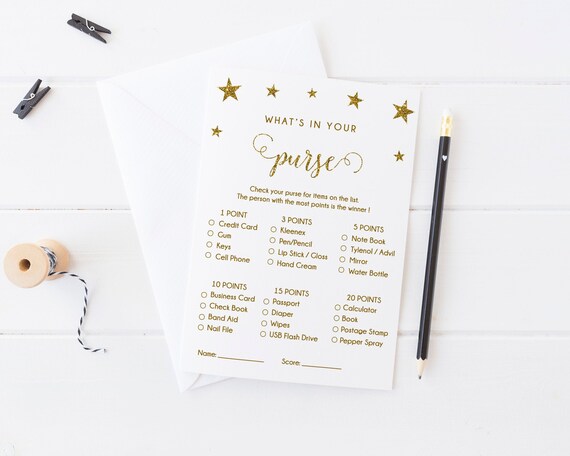 WHAT'S IN YOUR
purse
Check your purse for items on the list.
The person with the most points is the winner !
1 POINT
Credit Card
Gum
Keys
Cell Phone
3 POINTS
Kleenex
Pen/Pencil
Lip Stick / Gloss
Hand Cream
5 POINTS
Note Book
Tylenol / Advil
Mirror
Water Bottle
10 POINTS
Business Card
Check Book
Band Aid
Nail File
15 POINTS
Passport
Diaper
Wipes
USB Flash Drive
20 POINTS
Calculator
Book
Postage Stamp
Pepper Spray
Name: Score: